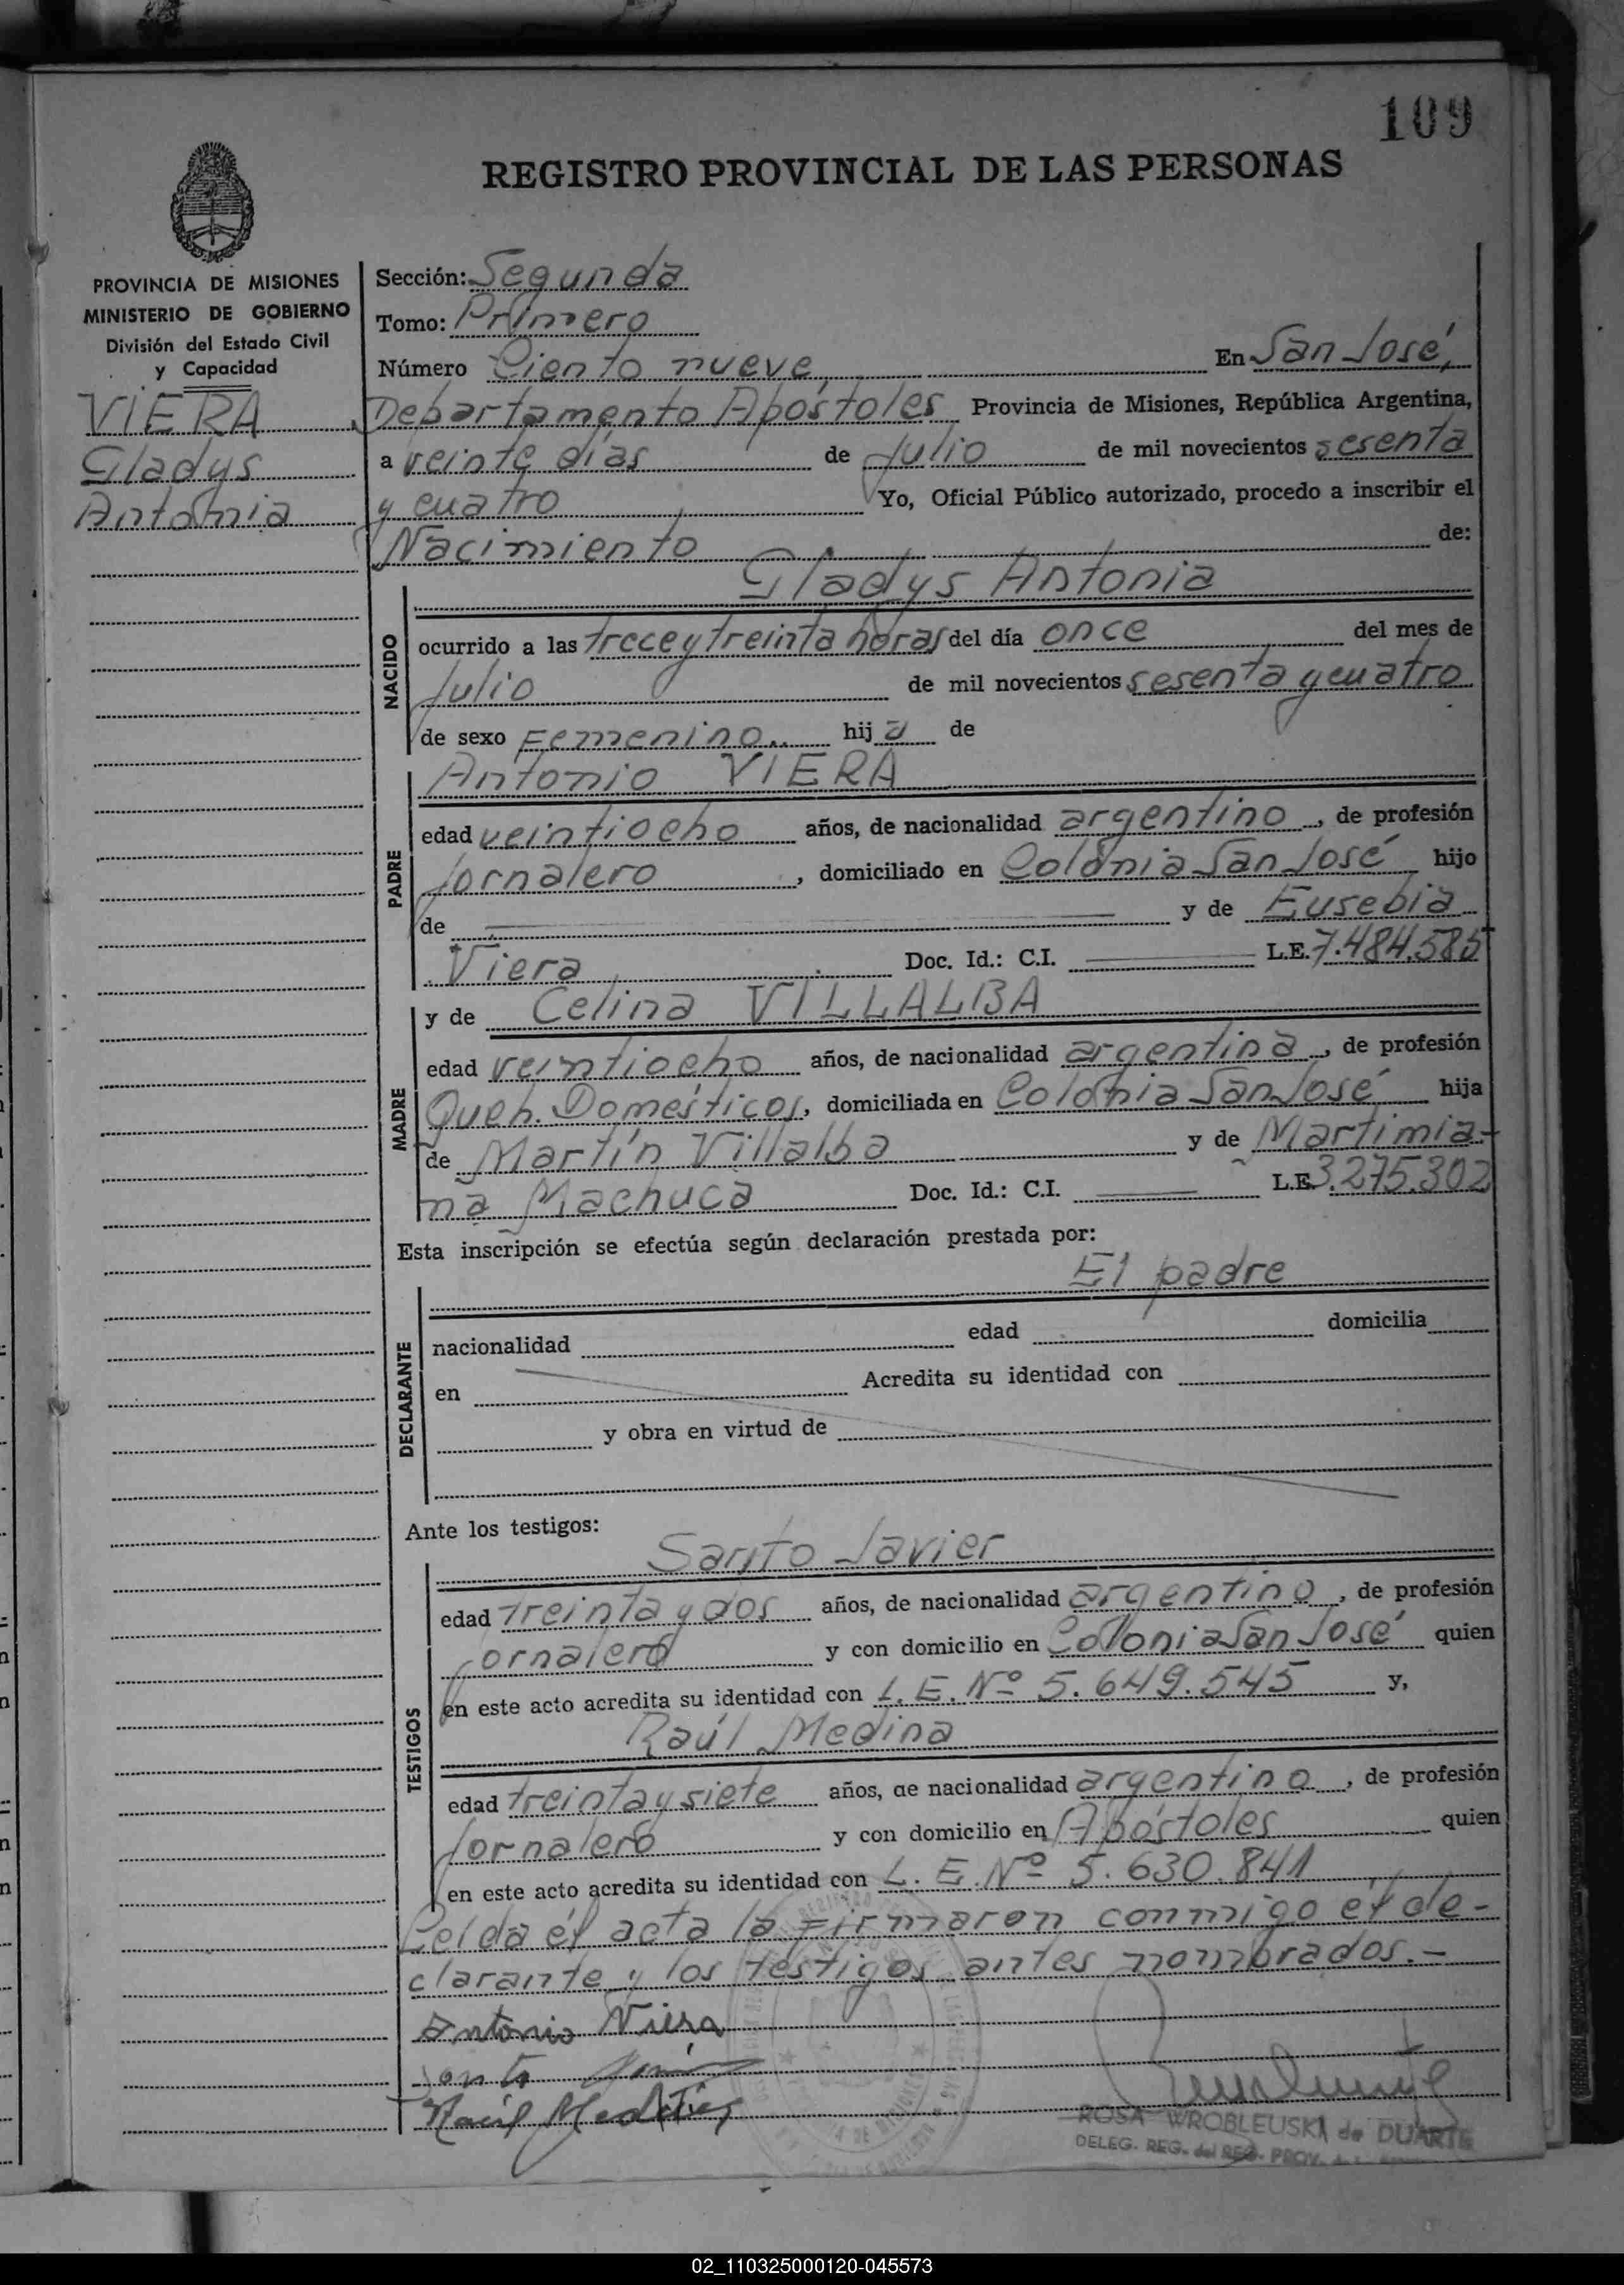 109
REGISTRO PROVINCIAL DE LAS PERSONAS
PROVINCIA DE MISIONES
MINISTERIO DE GOBIERNO
División del Estado Civil
y Capacidad
VIERA
Gladys
Antonia
Sección: Segunda
Tomo: Primero
Número Ciento nueve, En San José,
Departamento Apóstoles Provincia de Misiones, República Argentina,
a veinte días de Julio de mil novecientos sesenta
y cuatro Yo, Oficial Público autorizado, procedo a inscribir el
Nacimiento de:
Gladys Antonia
NACIDO
ocurrido a las trece y treinta horas del día once del mes de
Julio de mil novecientos sesenta y cuatro
de sexo Femenino.. hija de
Antonio VIERA
PADRE
edad veintiocho años, de nacionalidad argentino, de profesión
Jornalero, domiciliado en Colonia San José hijo
de y de Eusebia
Viera Doc. Id.: C.I. L.E. 7.484.585
y de Celina VILLALBA
MADRE
edad veintiocho años, de nacionalidad argentina, de profesión
Queh. Domésticos, domiciliada en Colonia San José hija
de Martín Villalba y de Martimia-
na Machuca Doc. Id.: C.I. L.E. 3.275.302
Esta inscripción se efectúa según declaración prestada por:
El padre
DECLARANTE
nacionalidad edad domicilia
en Acredita su identidad con
y obra en virtud de
Ante los testigos:
Santo Javier
TESTIGOS
edad treinta y dos años, de nacionalidad argentino, de profesión
Jornalero y con domicilio en Colonia San José quien
en este acto acredita su identidad con L.E. Nº 5.649.545 y,
Raúl Medina
edad treinta y siete años, de nacionalidad argentino, de profesión
Jornalero y con domicilio en Apóstoles quien
en este acto acredita su identidad con L.E. Nº 5.630.841
Leída el acta la firmaron conmigo el de-
clarante y los testigos antes nombrados.-
Antonio Viera
Raúl Medina
ROSA WROBLEUSKI de DUARTE
DELEG. REG. del REG. PROV.
02_110325000120-045573